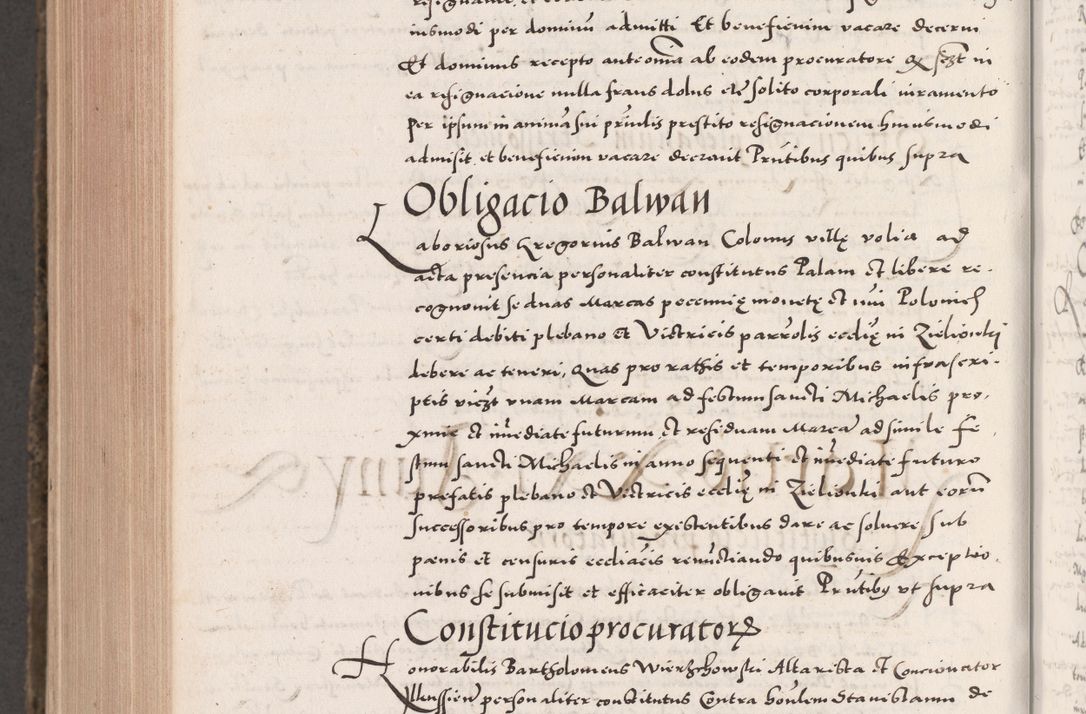 iusmodi per dominū admitti Et beneficium vacare decerni
Et dominus recepto ante omīa ab eodem procuratore in
ea resignacione nulla fraus dolus etc solito corporali iuramento
per ipsum in animā sui prīnlis prestito resignacionem huiusmodi
admisit et beneficium vacare decrevit Prn̄tibus quibus supra
Obligacio Balwan
Laboriosus Gregorius Balwan Colonus villę volia ad
acta presencia personaliter constitutus Palam et libere re-
cognovit se duas Marcas pecunię monetę et nūi Polonich
certi debiti plebano et Victricis parrolis ecclīę in Zielionki
debere ac teneri, Quas pro rathis et temporibus infrascri-
ptis viczt vnam Marcam ad festum sancti Michaelis pro-
xime et im̄ediate futurum et residuam Marcā ad simile fe
stum sancti Michaelis in anno sequenti et im̄ediate futuro
prefatis plebano et Victricis ecclīę in Zielionki aut eorū
successoribus pro tempore existentibus dare ac soluere sub
pænis et censuris eccliacis renūctiando quibusuis Exceptio-
nibus se submisit et efficaciter obligauit Prn̄tibus vt supra
Constitucio procuratorꝫ
Honorabilis Bartholomeus Wierzchowski Altarista et Concionator
Ilkussien̄ personaliter constitutus Contra honlem Stanislaum de